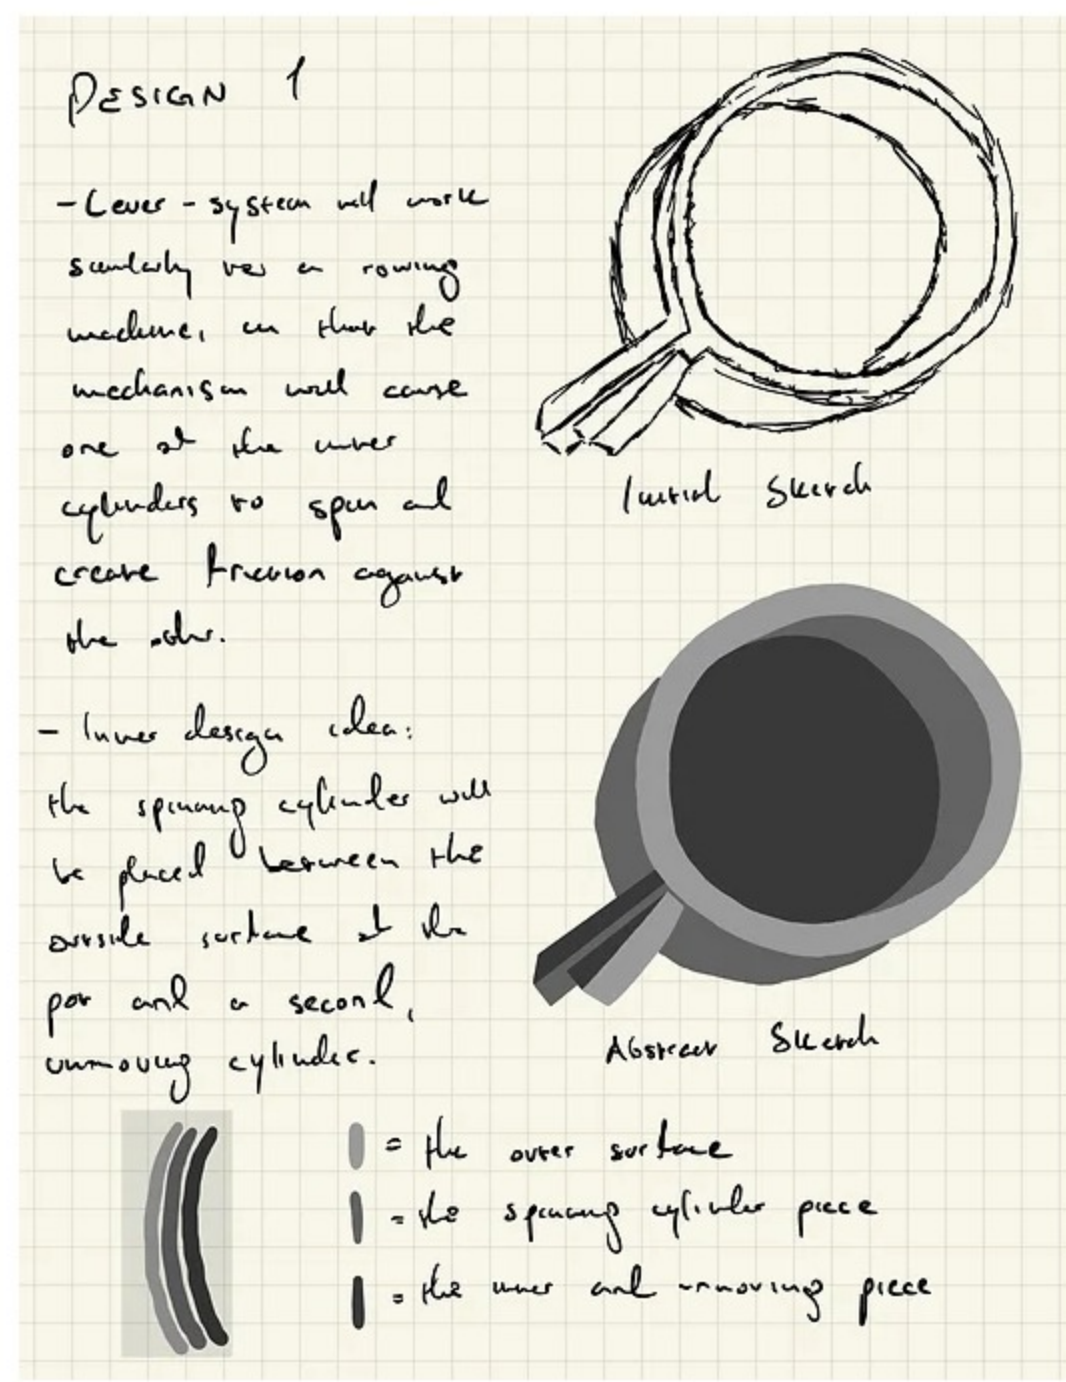 DESIGN 1
- Lever - system will work
similarly to a rowing
machine, in that the
mechanism will cause
one of the inner
cylinders to spin and
create friction against
the other.
Initial Sketch
- Inner design idea:
the spinning cylinder will
be placed between the
outside surface of the
pot and a second,
unmoving cylinder.
Abstract Sketch
= the outer surface
= the spinning cylinder piece
= the inner and unmoving piece